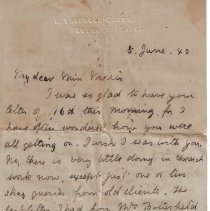 5 June. 40
My dear Miss
I was so glad to have your
letter of 16th this morning, for I
have often wondered how you were
all getting on. I wish I was with you.
No, there is very little doing in
work now, except just one or two
stray queries from old clients. The
I had from Mrs Butterfield